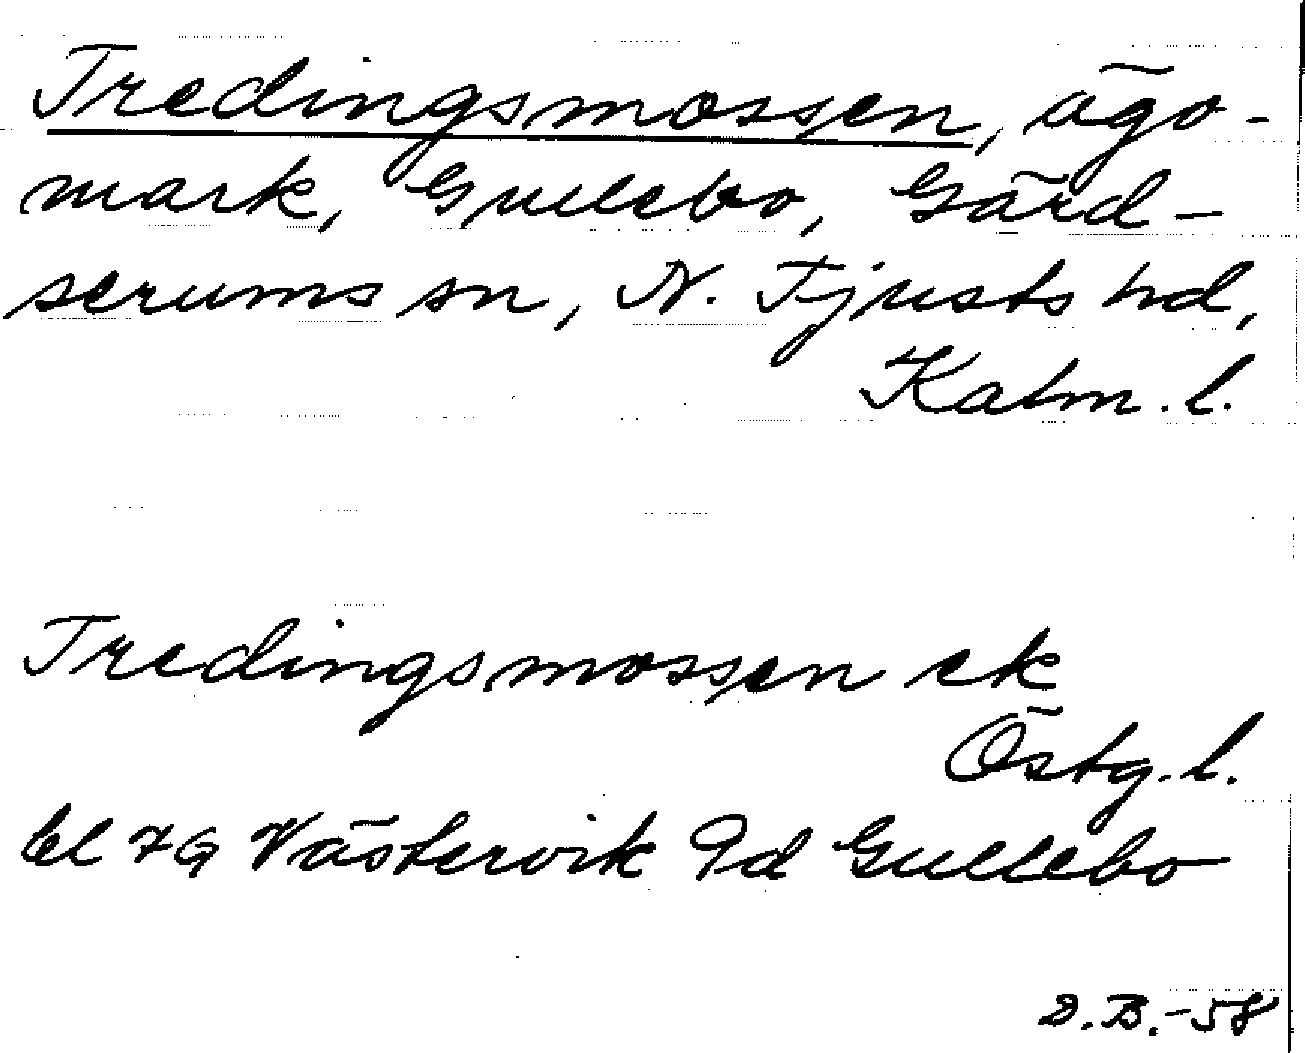 Tredingsmossen, ägo-
mark, Gullebo, Gärd-
serums sn, N. Tjusts hd,
Kalm. l.
Tredingsmossen ek
Östg. l.
bl 7G Västervik 9d Gullebo
D.B.-58